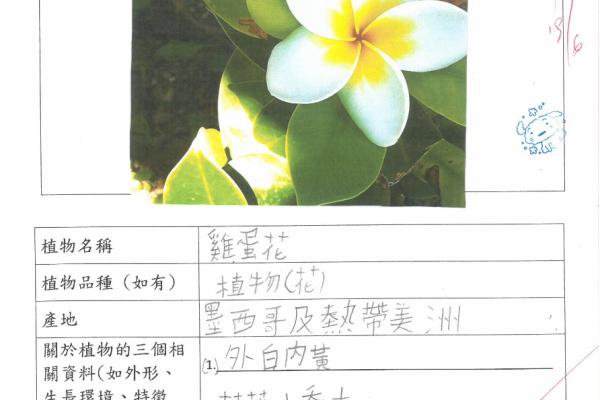 19/6
植物名稱
雞蛋花
植物品種（如有）
植物(花)
產地
墨西哥及熱帶美洲
關於植物的三個相
關資料(如外形、
生長環境、特徵
(1.) 外白內黃